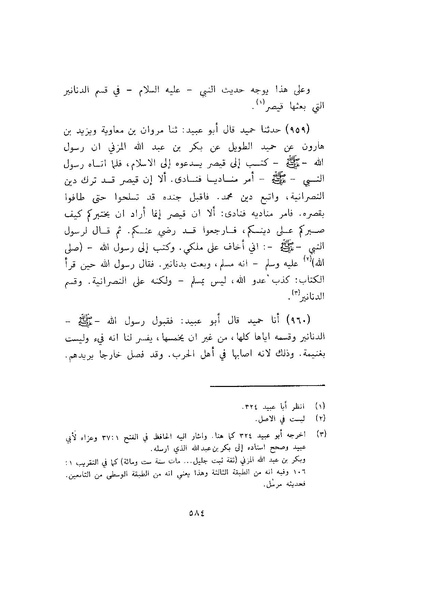 وعلى هذا يوجه حديث النبي - عليه السلام - في قسم الدنانير
التي بعثها قيصر(١).
(٩٥٩) حدثنا حميد قال أبو عبيد: ثنا مروان بن معاوية ويزيد بن
هارون عن حميد الطويل عن بكر بن عبد الله المزني ان رسول
الله - ﷺ - كتب إلى قيصر يدعوه إلى الاسلام، فلما اتاه رسول
النبي - ﷺ - أمر مناديا فنادى. ألا إن قيصر قد ترك دين
النصرانية، واتبع دين محمد. فاقبل جنده قد تسلحوا حتى طافوا
بقصره. فامر مناديه فنادى: ألا ان قيصر إنما أراد ان يختبركم كيف
صبركم على دينكم، فارجعوا قد رضي عنكم. ثم قال لرسول
النبي - ﷺ -: اني أخاف على ملكي. وكتب إلى رسول الله - (صلى
الله)(٢) عليه وسلم - انه مسلم، وبعث بدنانير. فقال رسول الله حين قرأ
الكتاب: كذب عدو الله، ليس بمسلم - ولكنه على النصرانية. وقسم
الدنانير(٣).
(٩٦٠) أنا حميد قال أبو عبيد: فقبول رسول الله - ﷺ -
الدنانير وقسمه اياها كلها، من غير ان يخمسها، يفسر لنا انه فيء وليست
بغنيمة. وذلك لانه اصابها في أهل الحرب. وقد فصل خارجا يريدهم.
(١) انظر أبا عبيد ٣٢٤.
(٢) ليست في الاصل.
(٣) اخرجه أبو عبيد ٣٢٤ كما هنا. واشار اليه الحافظ في الفتح ١: ٣٧ وعزاه لأبي
عبيد وصحح اسناده إلى بكر بن عبد الله الذي ارسله.
وبكر بن عبد الله المزني (ثقة ثبت جليل... مات سنة ست ومائة) كما في التقريب ١:
١٠٦ وفيه انه من الطبقة الثالثة وهذا يعني انه من الطبقة الوسطى من التابعين.
فحديثه مرسل.
٥٨٤